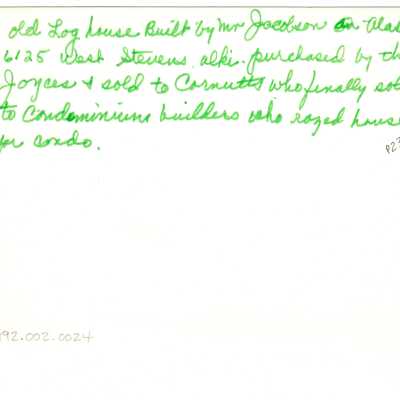 old Log house Built by Mr Jacobson on Alas
6125 West Stevens alki. purchased by th
Joyces & sold to Cornutts who finally sol
to Condominium builders who razed house
for condo.
P23
92.002.0024